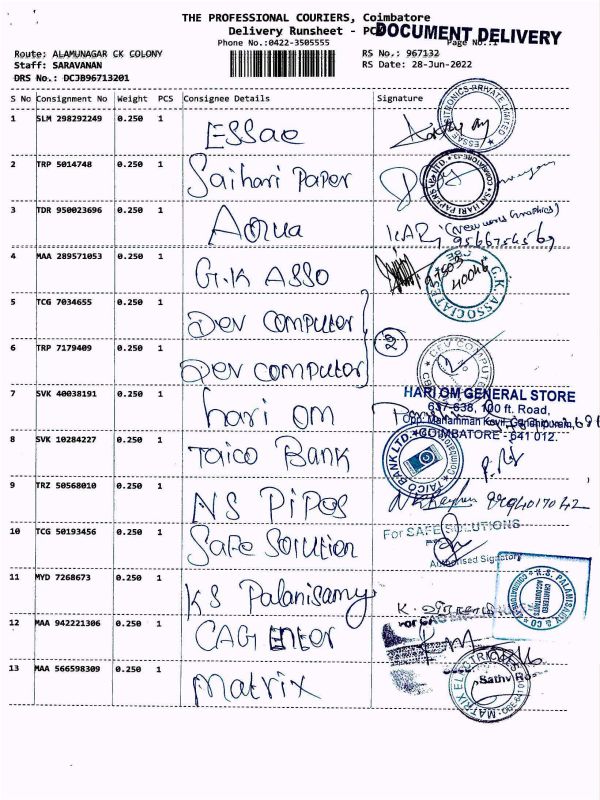 THE PROFESSIONAL COURIERS, Coimbatore
Delivery Runsheet - PCD
DOCUMENT DELIVERY
Phone No.:0422-3505555
Page No.:1
Route: ALAMUNAGAR CK COLONY
RS No.: 967132
Staff: SARAVANAN
RS Date: 28-Jun-2022
DRS No.: DCJB96713201
S No Consignment No Weight PCS Consignee Details Signature
1 SLM 298292249 0.250 1 Essae
2 TRP 5014748 0.250 1 Saihari Paper
3 TDR 950023696 0.250 1 Aqua
4 MAA 289571053 0.250 1 G.K ASSO
G.K. ASSOCIATES
5 TCG 7034655 0.250 1 Dev Computer
6 TRP 7179409 0.250 1 Dev Computer
DEV COMPUTER
7 SVK 40038191 0.250 1 hari om
HARI OM GENERAL STORE
637-638, 100 ft. Road,
COIMBATORE - 641 012.
8 SVK 10284227 0.250 1 Taico Bank
TAICO BANK LTD.
9 TRZ 50568010 0.250 1 NS Pipes
10 TCG 50193456 0.250 1 Safe Solution
For SAFE SOLUTIONS
Authorised Signatory
11 MYD 7268673 0.250 1 KS Palanisamy
K.S. PALANISAMY & CO
CHARTERED
ACCOUNTANTS
COIMBATORE
12 MAA 942221306 0.250 1 CAG Enter
13 MAA 566598309 0.250 1 Matrix